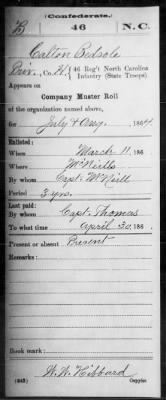 (Confederate.)
B 46 N.C.
Calton Bedsole
Priv., Co. H, 46 Reg't North Carolina
Infantry (State Troops)
Appears on
Company Muster Roll
of the organization named above,
for July & Aug, 1864
Enlisted:
When March 11, 186
Where McNeills
By whom Capt. McNeill
Period 3 yrs.
Last paid:
By whom Capt. Thomas
To what time April 30, 186
Present or absent Present
Remarks:
Book mark:
W. W. Hibbard
(642) Copyist.